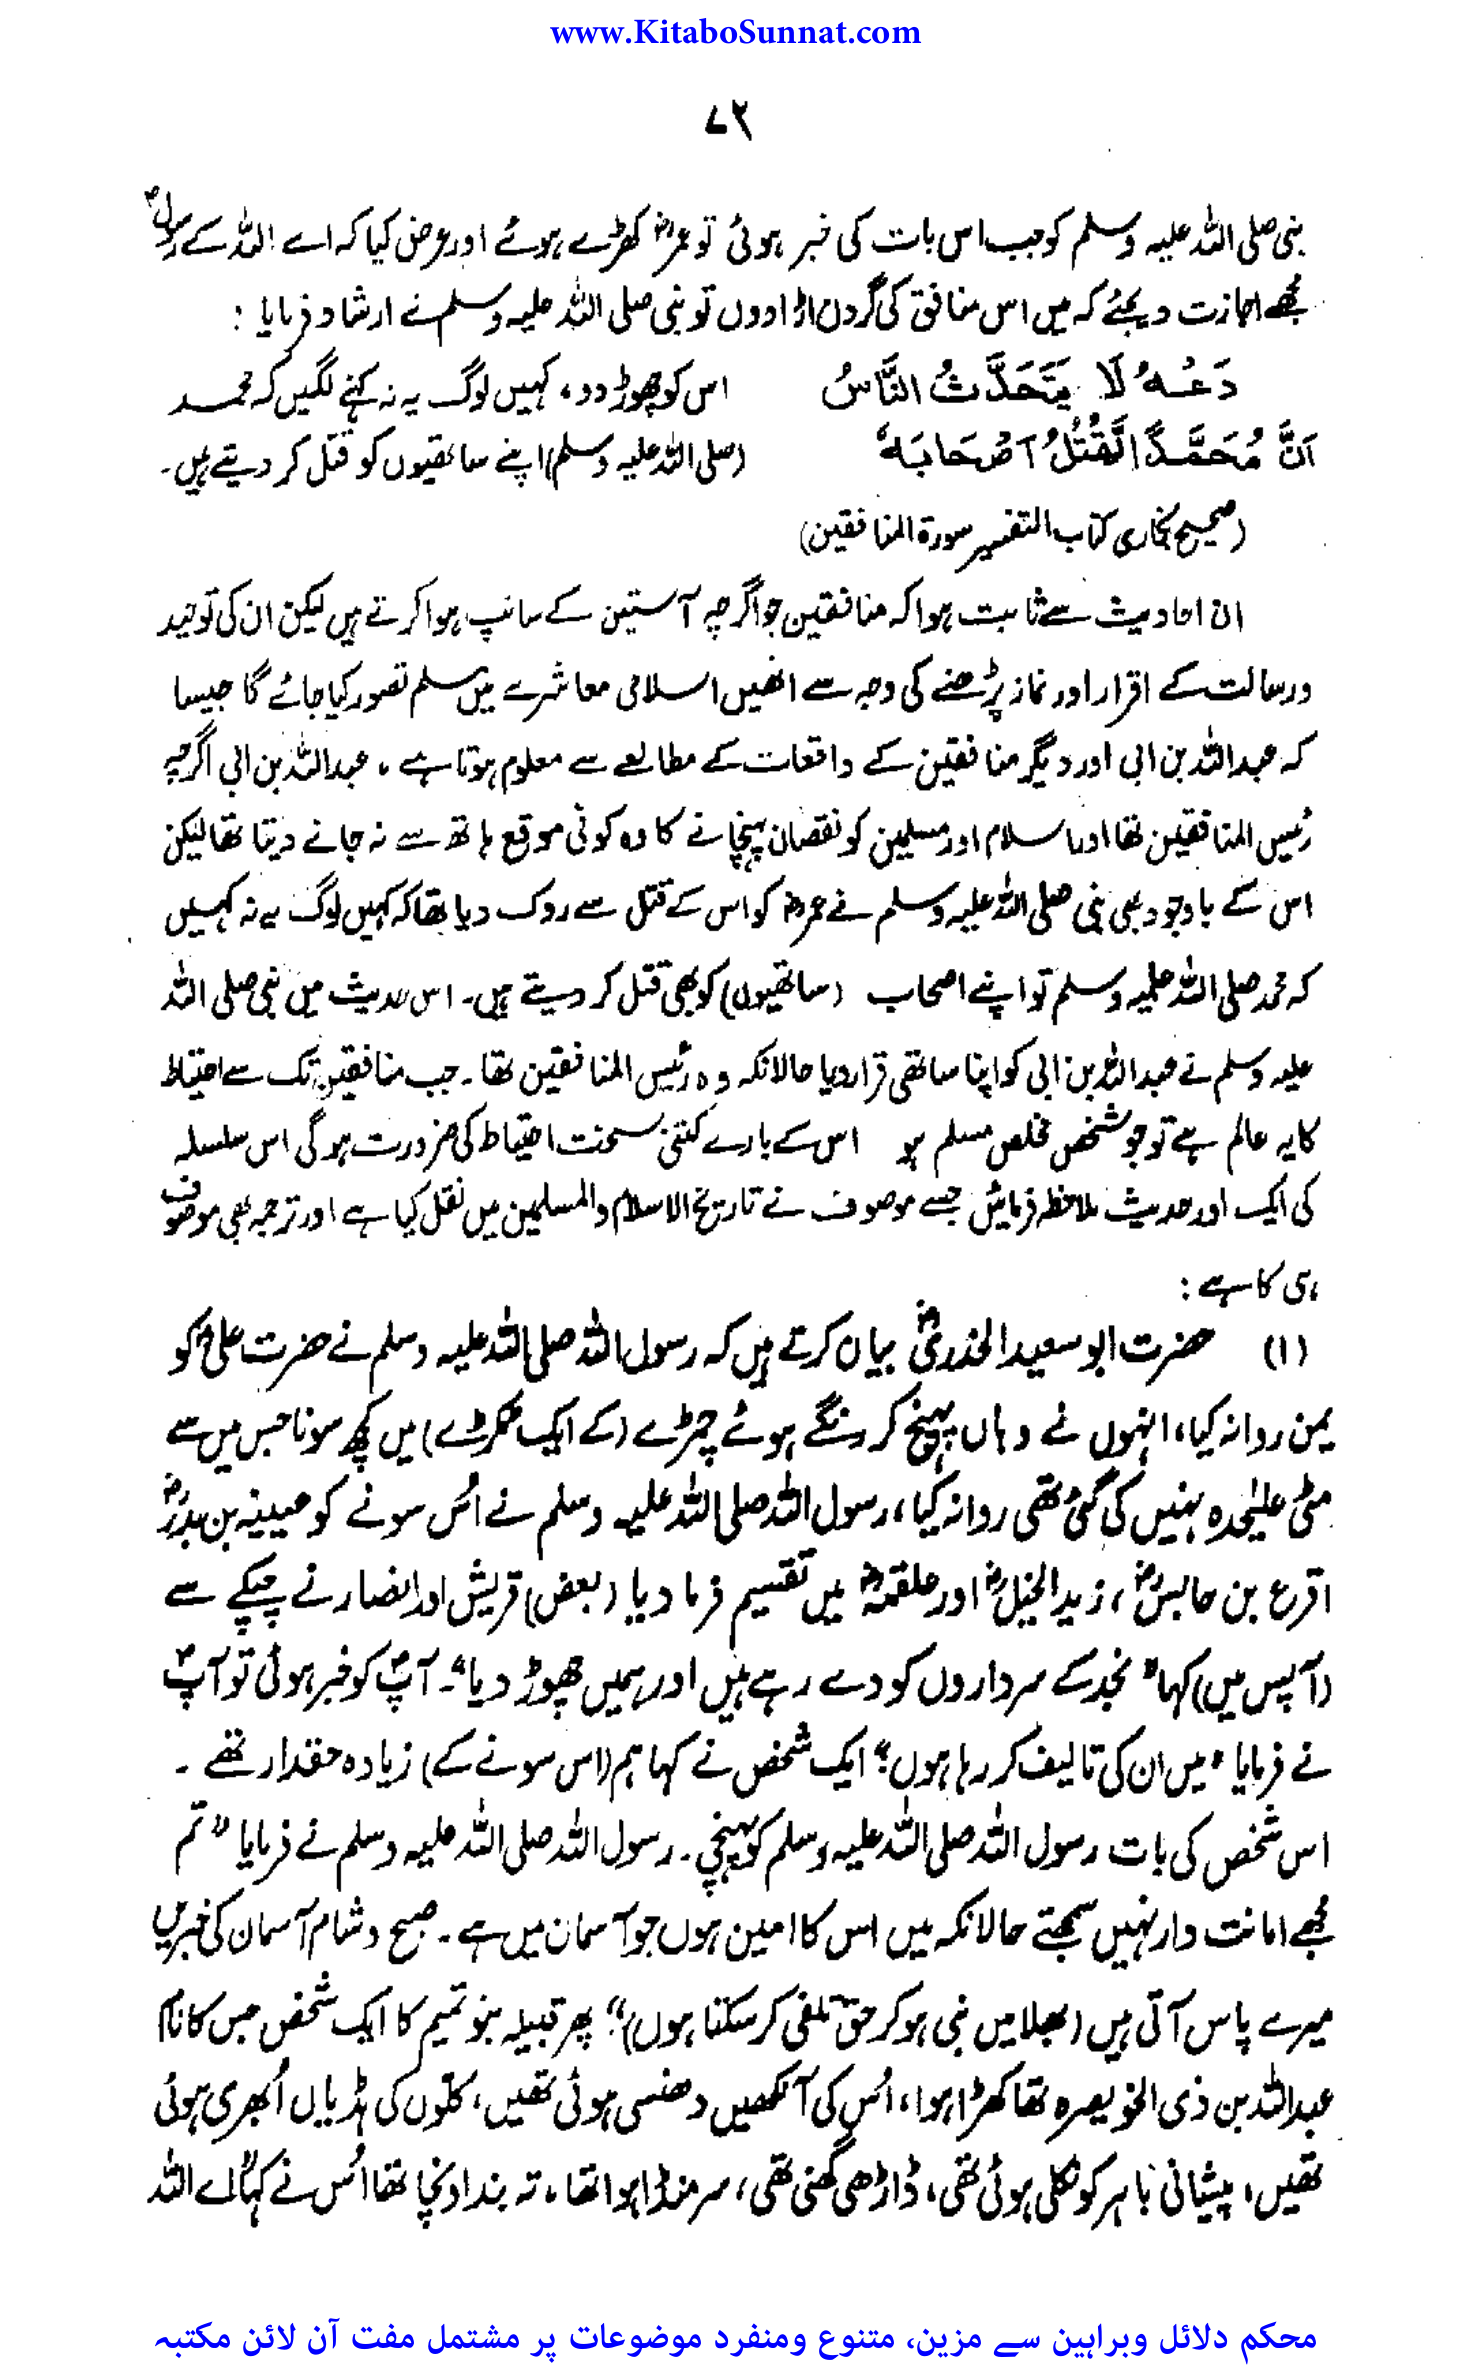 www.KitaboSunnat.com
۷۲
نبی صلی اللہ علیہ وسلم کو جب اس بات کی خبر ہوئی تو عمرؓ کھڑے ہوئے اور عرض کیا کہ اے اللہ کے رسولؐ
مجھے اجازت دیجئے کہ میں اس منافق کی گردن اڑا دوں تو نبی صلی اللہ علیہ وسلم نے ارشاد فرمایا :
دَعْهُ لَا يَتَحَدَّثُ النَّاسُ اس کو چھوڑ دو، کہیں لوگ یہ نہ کہنے لگیں کہ محمد
اَنَّ مُحَمَّدًا يَّقْتُلُ اَصْحَابَهٗ (صلی اللہ علیہ وسلم) اپنے ساتھیوں کو قتل کر دیتے ہیں۔
(صحیح بخاری کتاب التفسیر سورۃ المنافقین)
ان احادیث سے ثابت ہوا کہ منافقین جو اگرچہ آستین کے سانپ ہوا کرتے ہیں لیکن ان کی توحید
و رسالت کے اقرار اور نماز پڑھنے کی وجہ سے انھیں اسلامی معاشرے میں مسلم تصور کیا جائے گا جیسا
کہ عبداللہ بن ابی اور دیگر منافقین کے واقعات کے مطالعے سے معلوم ہوتا ہے ۔ عبداللہ بن ابی اگرچہ
رئیس المنافقین تھا اور اسلام اور مسلمین کو نقصان پہنچانے کا وہ کوئی موقع ہاتھ سے نہ جانے دیتا تھا لیکن
اس کے باوجود بھی نبی صلی اللہ علیہ وسلم نے عمرؓ کو اس کے قتل سے روک دیا تھا کہ کہیں لوگ یہ نہ کہیں
کہ محمد صلی اللہ علیہ وسلم تو اپنے اصحاب (ساتھیوں) کو بھی قتل کر دیتے ہیں۔ اس حدیث میں نبی صلی اللہ
علیہ وسلم نے عبداللہ بن ابی کو اپنا ساتھی قرار دیا حالانکہ وہ رئیس المنافقین تھا۔ جب منافقین تک سے احتیاط
کا یہ عالم ہے تو جو شخص مخلص مسلم ہو اس کے بارے کتنی سخت احتیاط کی ضرورت ہو گی اس سلسلہ
کی ایک اور حدیث ملاحظہ فرمائیں جسے موصوف نے تاریخ الاسلام والمسلمین میں نقل کیا ہے اور ترجمہ بھی موصوف
ہی کا ہے :
(۱) حضرت ابو سعید الخدریؓ بیان کرتے ہیں کہ رسول اللہ صلی اللہ علیہ وسلم نے حضرت علیؓ کو
یمن روانہ کیا، انہوں نے وہاں پہنچ کر رنگے ہوئے چمڑے (کے ایک ٹکڑے) میں کچھ سونا جس میں سے
مٹی علیٰحدہ نہیں کی گئی تھی روانہ کیا، رسول اللہ صلی اللہ علیہ وسلم نے اُس سونے کو عیینہ بن بدرؓ
اقرع بن حابسؓ ، زید الخیلؓ اور علقمہؓ میں تقسیم فرما دیا (بعض) قریش اور انصار نے چپکے سے
(آپس میں) کہا “نجد کے سرداروں کو دے رہے ہیں اور ہمیں چھوڑ دیا“۔ آپؐ کو خبر ہوئی تو آپؐ
نے فرمایا “میں ان کی تالیف کر رہا ہوں“ ایک شخص نے کہا ہم (اس سونے کے) زیادہ حقدار تھے ۔
اس شخص کی بات رسول اللہ صلی اللہ علیہ وسلم کو پہنچی ۔ رسول اللہ صلی اللہ علیہ وسلم نے فرمایا “تم
مجھے امانت دار نہیں سمجھتے حالانکہ میں اس کا امین ہوں جو آسمان میں ہے ۔ صبح و شام آسمان کی خبریں
میرے پاس آتی ہیں (بھلا میں نبی ہو کر حق تلفی کر سکتا ہوں)“ پھر قبیلہ بنو تمیم کا ایک شخص جس کا نام
عبداللہ بن ذی الخویصرہ تھا کھڑا ہوا، اُس کی آنکھیں دھنسی ہوئی تھیں، کلّوں کی ہڈیاں اُبھری ہوئی
تھیں، پیشانی باہر کو نکلی ہوئی تھی، ڈاڑھی گھنی تھی، سر منڈا ہوا تھا، تہ بند اونچا تھا اُس نے کہا “اے اللہ
محکم دلائل وبراہین سے مزین، متنوع ومنفرد موضوعات پر مشتمل مفت آن لائن مکتبہ